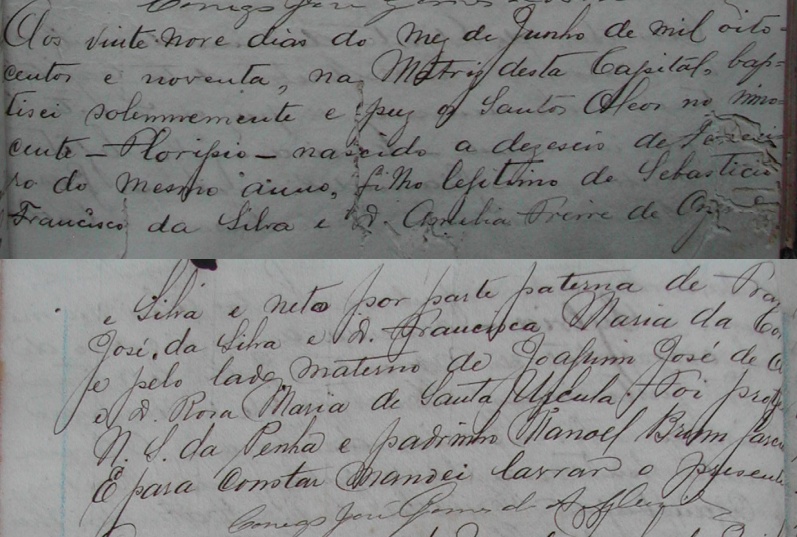 Conego José Gomes
Aos vinte nove dias do mez de Junho de mil oito-
centos e noventa, na Matriz desta Capital, bap=
tisei solemnemente e puz os Santos Oleos no inno-
cente - Floripio - nascido a dezeseis de Janei
ro do mesmo anno, filho legitimo de Sebastião
Francisco da Silva e D. Amelia Freire de
e Silva e neto por parte paterna de Fra
José da Silva e D. Francisca Maria da Co
e pelo lado materno de Joaquim José de
e D. Rosa Maria de Santa Ursula. Foi prot
N. S. da Penha e padrinho Manoel Brum
E para constar mandei lavrar o presente
Conego José Gomes de